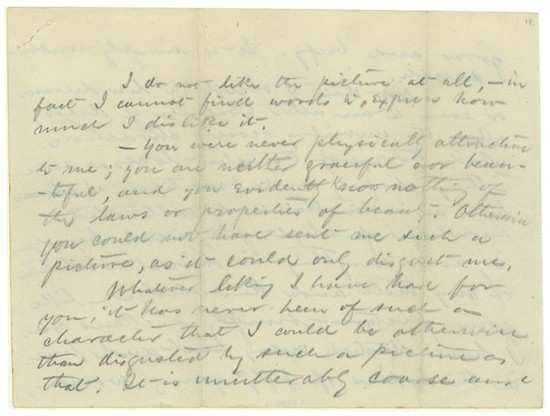 I do not like the picture at all, – in
fact I cannot find words to express how
much I dislike it.
– You were never physically attractive
to me; you are neither graceful nor beau-
-tiful, and you evidently know nothing of
the laws or properties of beauty. Otherwise
you could not have sent me such a
picture, as it could only disgust me.
Whatever liking I have had for
you, it has never been of such a
character that I could be otherwise
than disgusted by such a picture as
that. It is unutterably coarse and